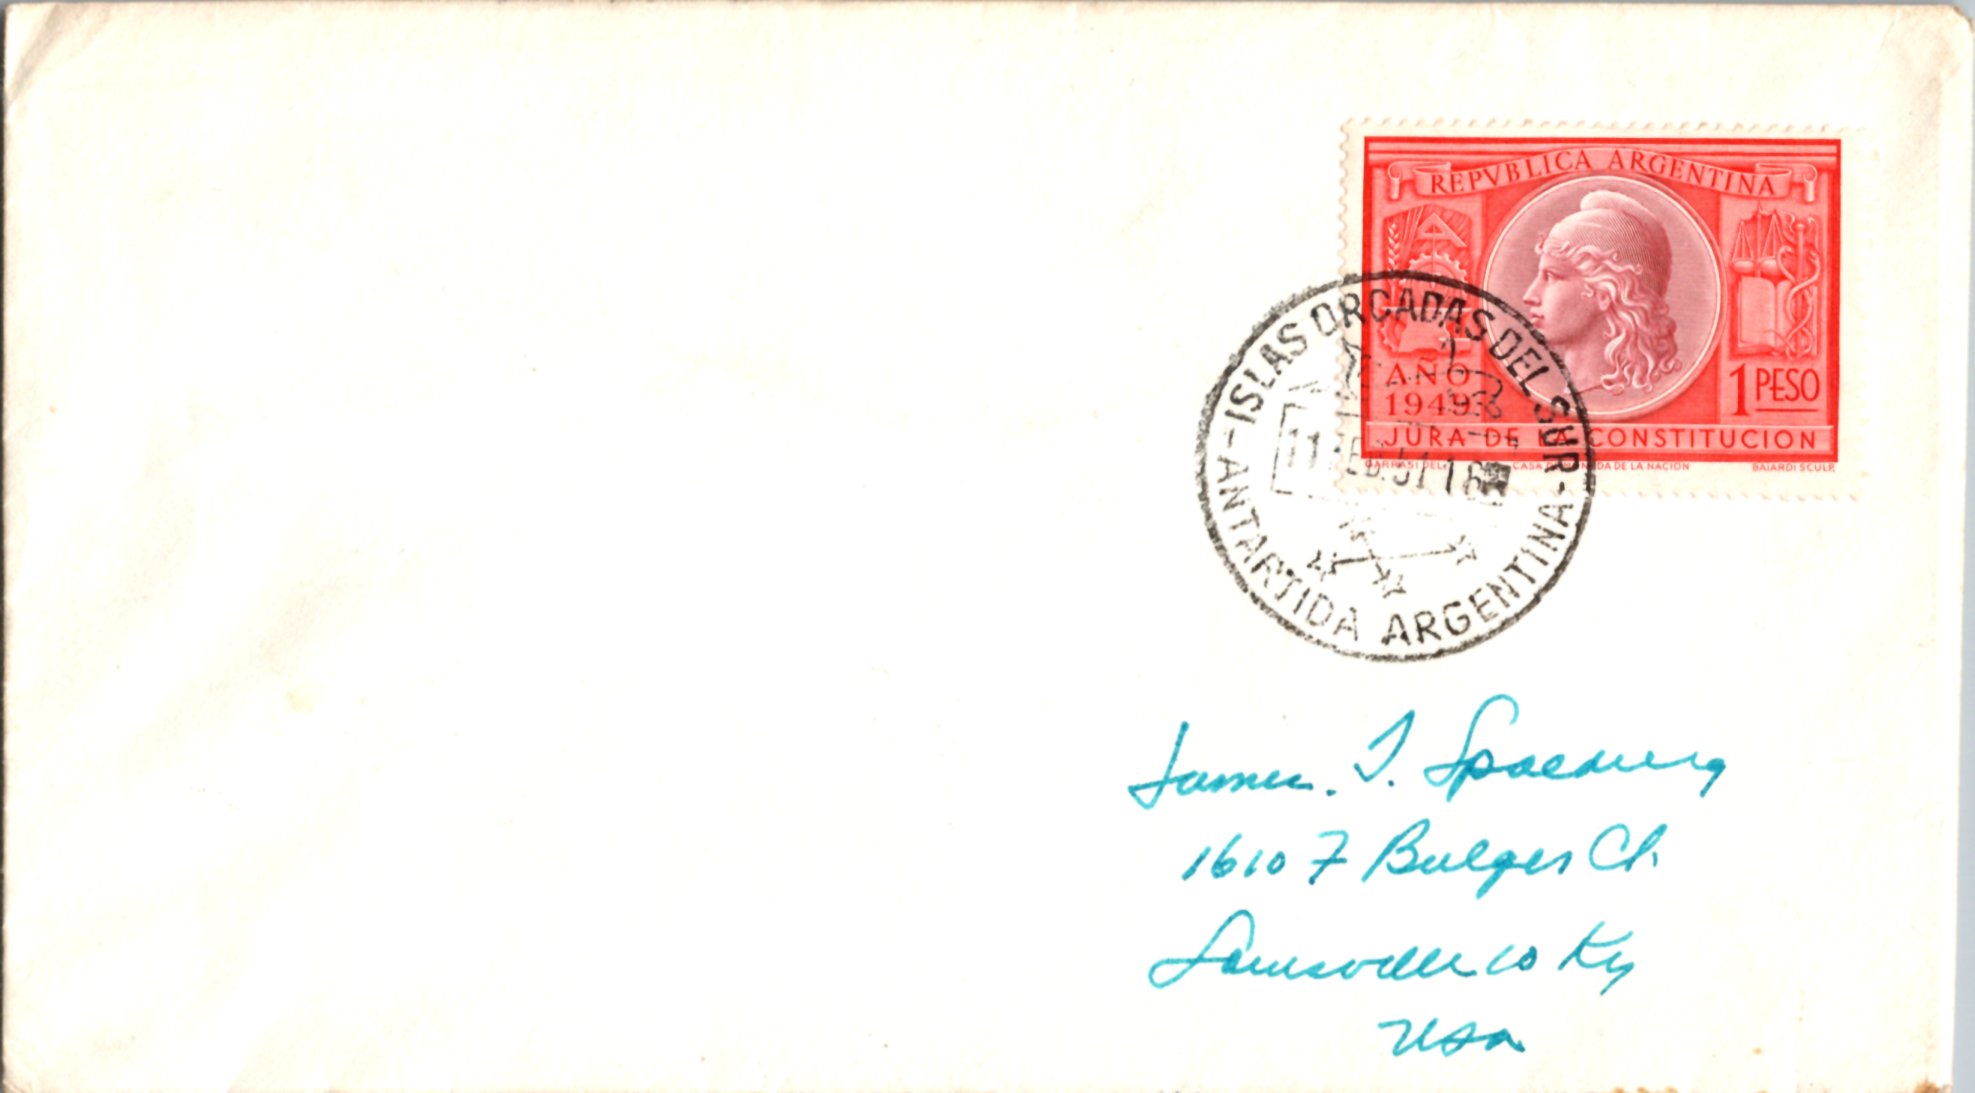 REPVBLICA ARGENTINA
AÑO
1949
1 PESO
JURA DE LA CONSTITUCION
GARRASI DEL. CASA DE MONEDA DE LA NACION BAIARDI SCULP.
-ISLAS ORCADAS DEL SUR-
11 FEB. 51 16
ANTARTIDA ARGENTINA
James. T.
1610 F Bulger Ct.
Louisville 10 Ky
USA